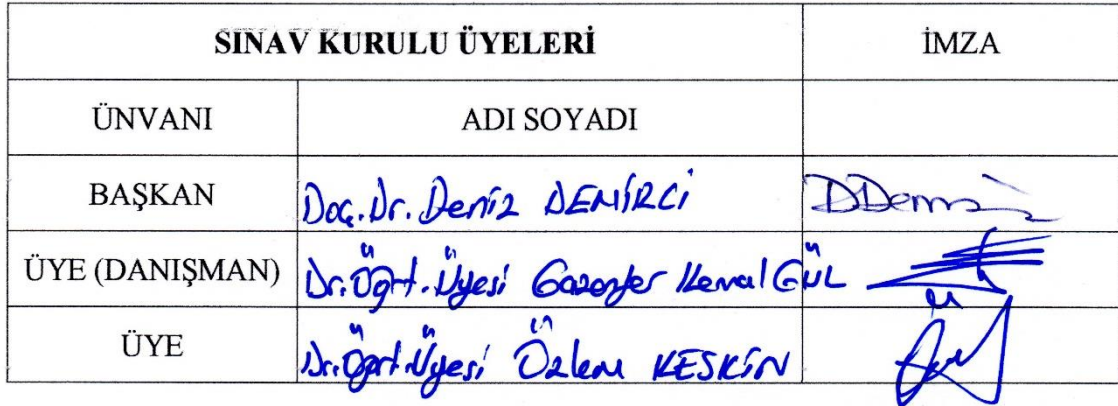 SINAV KURULU ÜYELERİ İMZA
ÜNVANI ADI SOYADI
BAŞKAN Doç. Dr. Deniz DEMİRCİ DDemi
ÜYE (DANIŞMAN) Dr. Öğrt. Üyesi Kemal GÜL
ÜYE Dr. Öğrt. Üyesi Özlem KESKİN